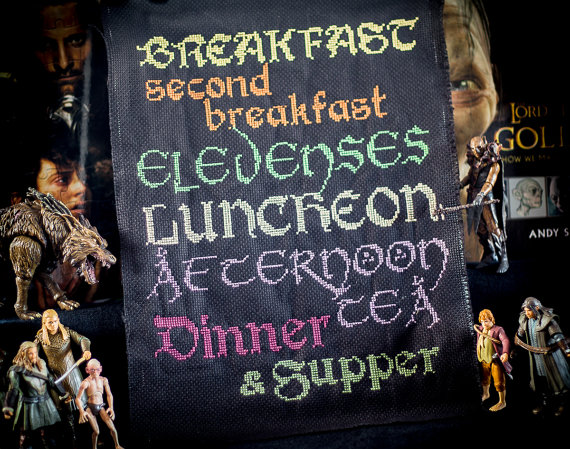 BREAKFAST
second
breakfast
ELEVENSES
LUNCHEON
AFTERNOON
TEA
Dinner
& Supper
LORD
GOLL
HOW WE MA
ANDY S